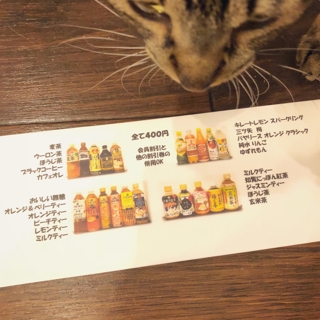 全て400円
会員割引と
他の割引券の
併用OK
麦茶
ウーロン茶
ほうじ茶
ブラックコーヒー
カフェオレ
キレートレモン スパークリング
三ツ矢 梅
バヤリース オレンジ クラシック
純水りんご
ゆずれもん
おいしい無糖
オレンジ&ベリーティー
オレンジティー
ピーチティー
レモンティー
ミルクティー
ミルクティー
知覧にっぽん紅茶
ジャスミンティー
ほうじ茶
玄米茶